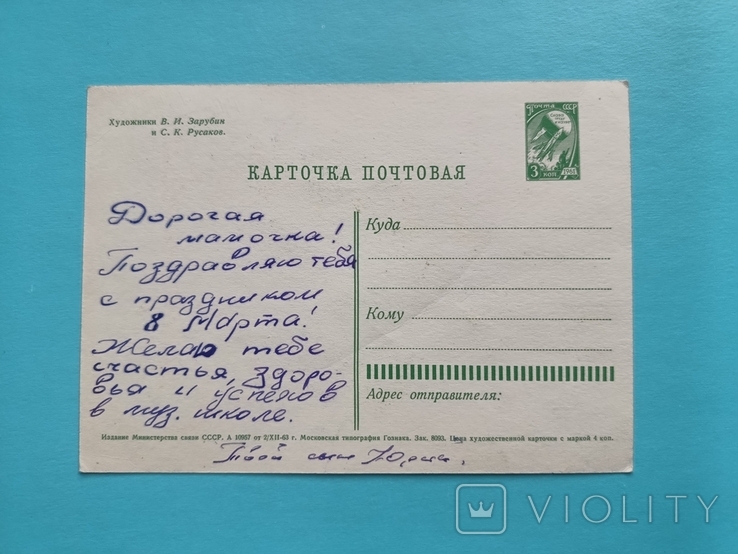 Художники В. И. Зарубин
и С. К. Русаков.
Почта СССР
3 коп
1961
КАРТОЧКА ПОЧТОВАЯ
Дорогая
мамочка!
Поздравляю тебя
с праздником
8 Марта!
Желаю тебе
счастья, здоро-
вья и успехов
в муз. школе.
Твой сын Юрик.
Куда
Кому
Адрес отправителя:
Издание Министерства связи СССР. А 10957 от 2/XII-63 г. Московская типография Гознака. Зак. 8093. Цена художественной карточки с маркой 4 коп.
VIOLITY